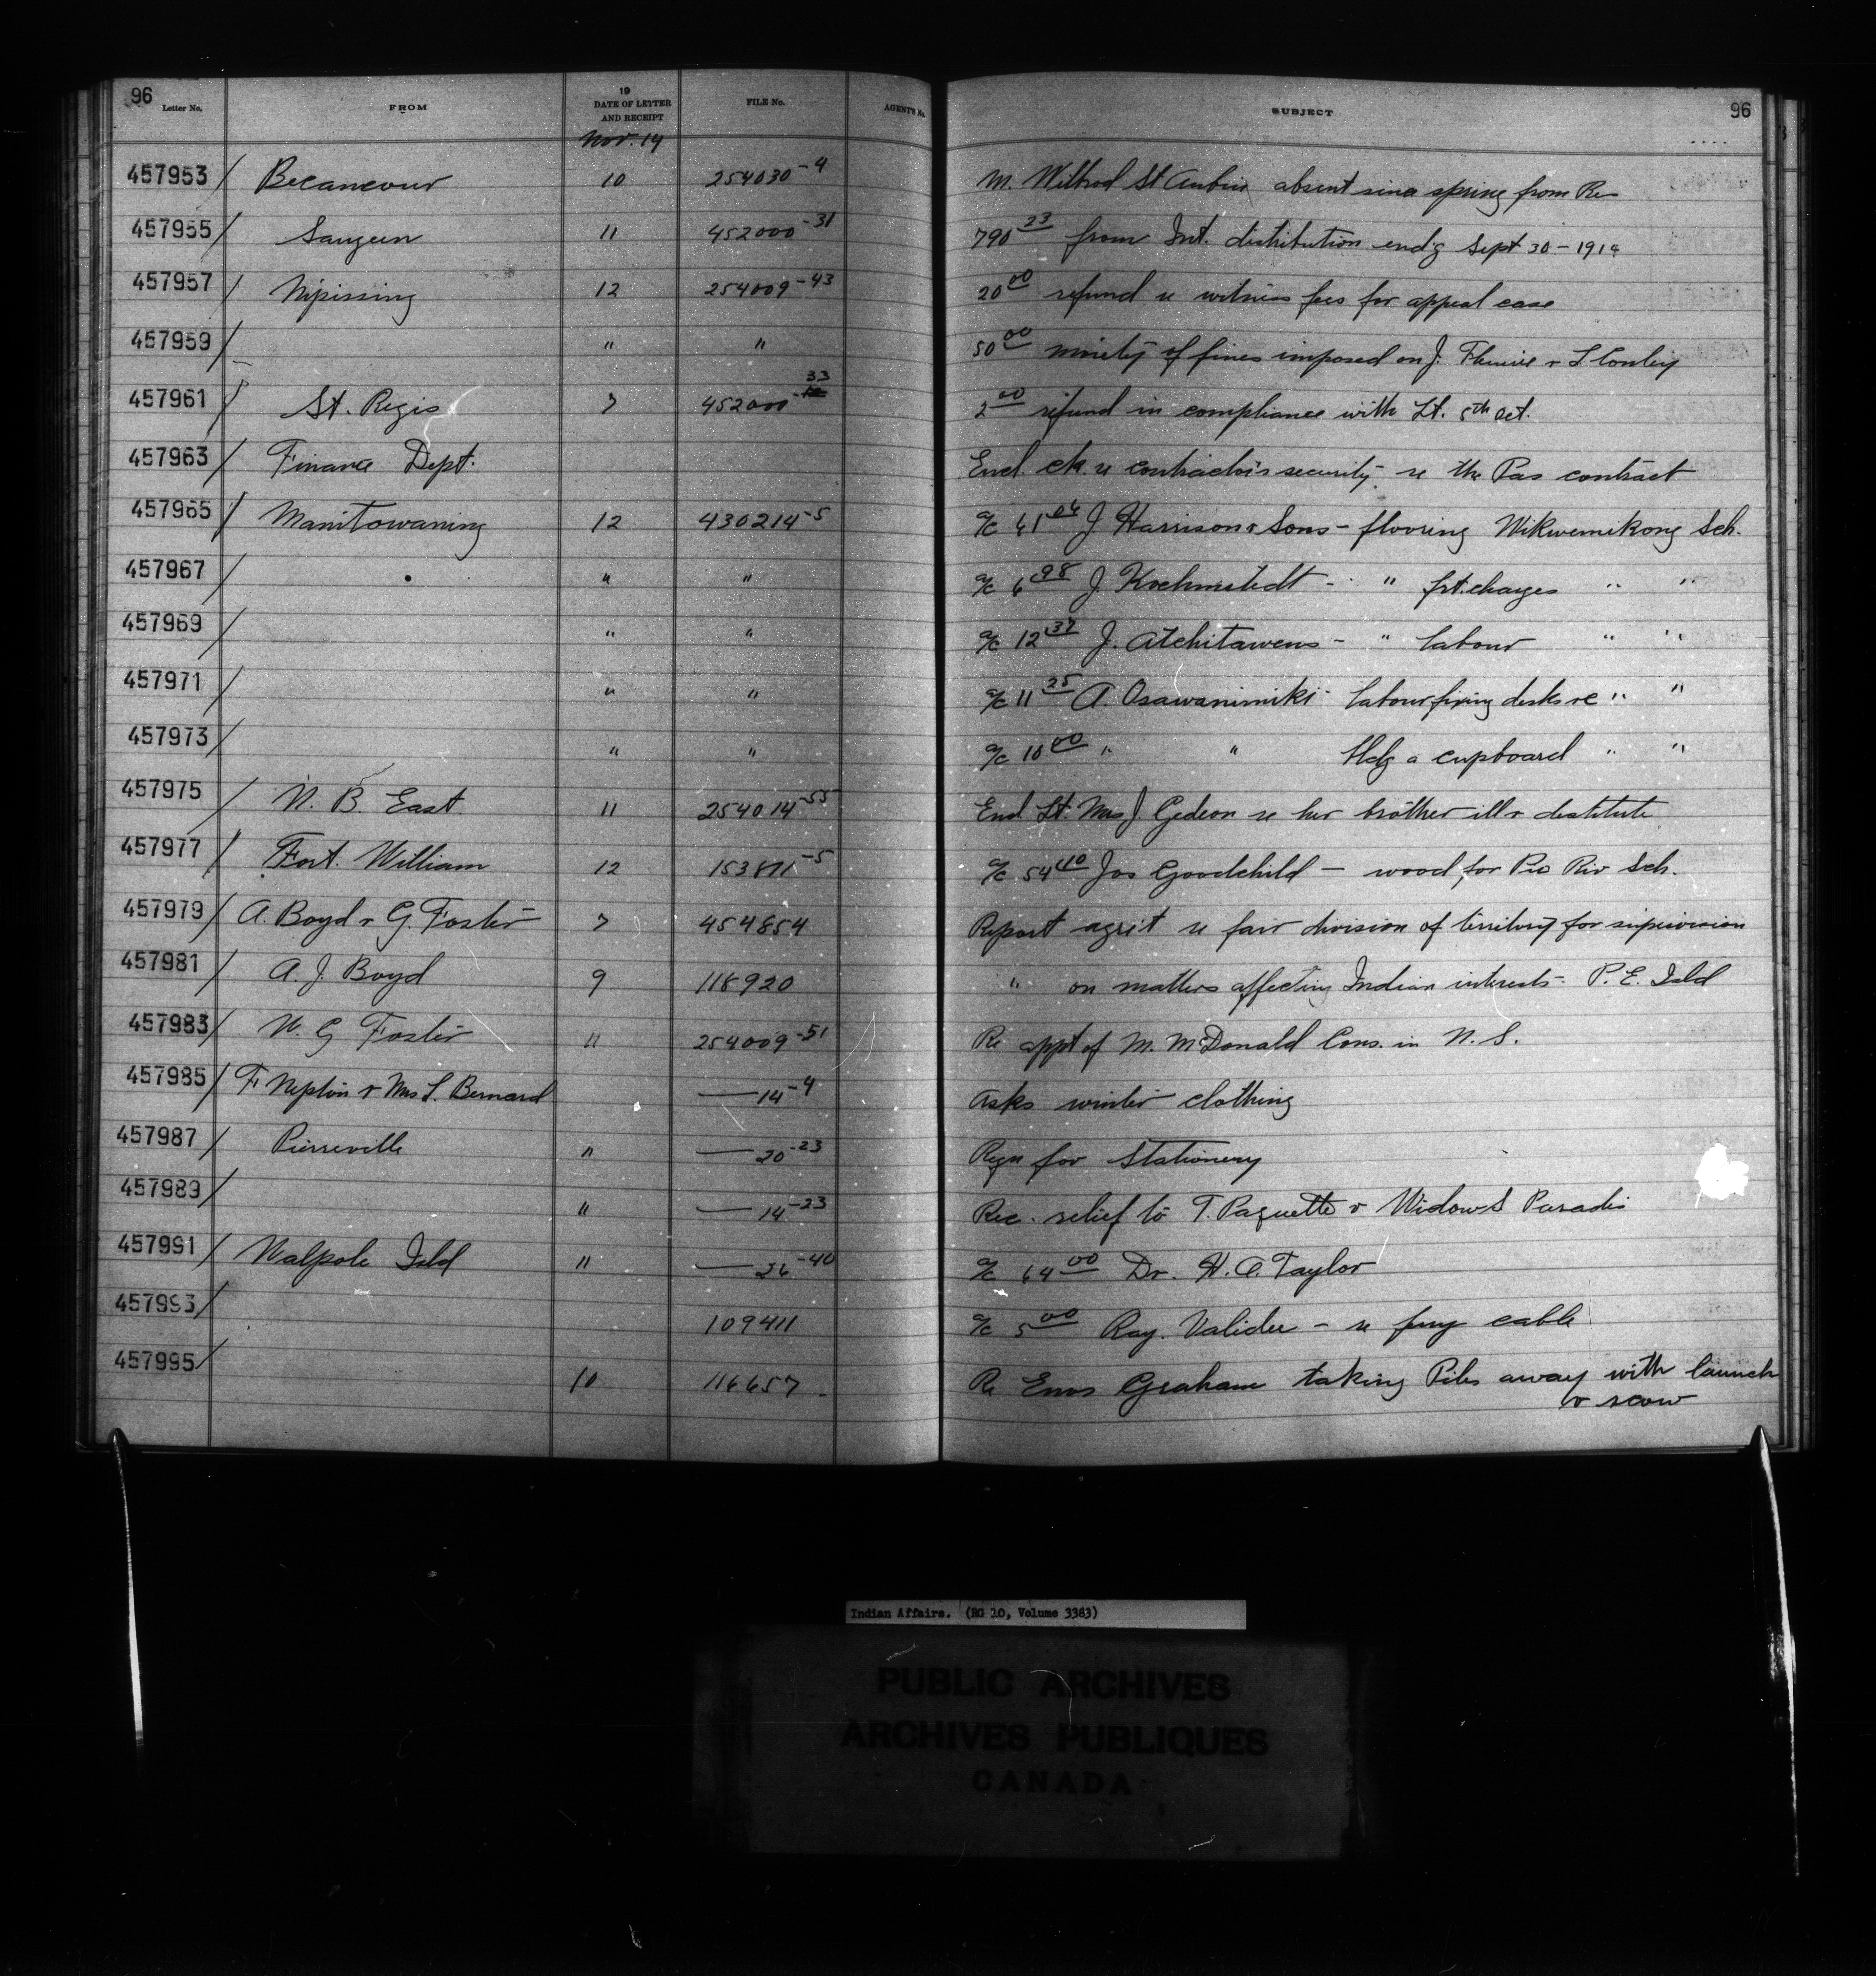 96 Letter No. FROM 19 DATE OF LETTER AND RECEIPT FILE No. AGENT'S No. SUBJECT 96
Nov. 14
457953 / Becancour 10 254030-4 M. Wilbrod St Aubin absent since spring from Re
457955 / Saugeen 11 452000-31 790 23 from Int. distribution end'g Sept 30 - 1914
457957 / Nipissing 12 254009-43 20 00 refund re witness fees for appeal case
457959 / " " 50 00 moiety of fines imposed on J. & L Conley
457961 / St. Regis 7 452000-33 2 00 refund in compliance with Lt. 5th Oct.
457963 / Finance Dept. Encl. ck. re contractor's security re the Pas contract
457965 / Manitowaning 12 430214-5 a/c 61 04 J. Harrison & Sons - flooring Wikwemikong Sch.
457967 / " " a/c 6 98 J. Kochmstedt - " frt. charges " "
457969 / " " a/c 12 37 J. Atchitawens - " labour " "
457971 / " " a/c 11 25 A. Osawanimiki - labour fixing desks re " "
457973 / " " a/c 10 00 " " bldg a cupboard " "
457975 / N. B. East 11 254014-55 Encl. Lt. Mrs J. Gedeon re her brother ill & destitute
457977 / Fort. William 12 153871-5 a/c 54 40 Jos Goodchild - wood for Pic Riv Sch.
457979 / A. Boyd & G. Foster 7 454854 Report agrt re fair division of territory for supervision
457981 / A. J. Boyd 9 118920 " on matters affecting Indian interests - P. E. Isld
457983 / W. G Foster 11 254009-51 Re appt of M. McDonald Cons. in N. S.
457985 / F Neptin & Mrs L. Bernard — 14-4 Asks winter clothing
457987 / Pierreville " — 20-23 Reqn for Stationery
457989 / " — 14-23 Rec. relief to T. Paquette & Widow S Paradis
457991 / Walpole Isld " — 26-40 a/c 64 00 Dr. H. A. Taylor
457993 / 109411 a/c 5 00 Ray. - re ferry cable
457995 / 10 116657 Re Enos Graham taking Piles away with launch
& scow
Indian Affairs. (RG 10, Volume 3383)
PUBLIC ARCHIVES
ARCHIVES PUBLIQUES
CANADA